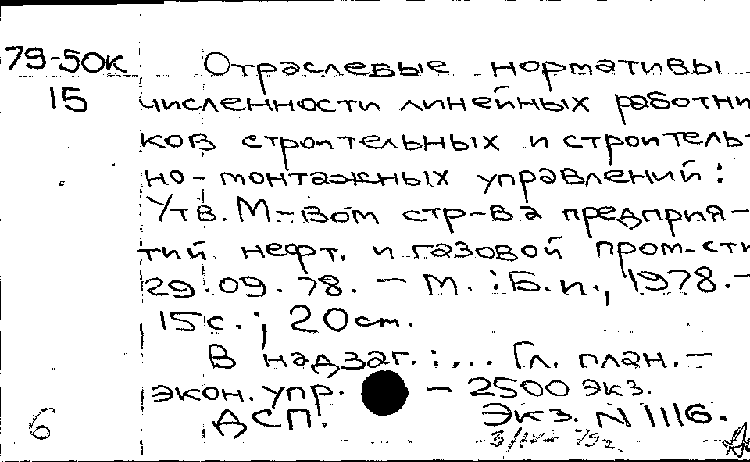 79-50к Отраслевые нормативы
15 численности линейных работни
ков строительных и строитель-
но-монтажных управлений:
Утв. М-вом стр-ва предприя-
тий нефт. и газовой пром-сти
29.09.78. – М.: Б.и., 1978.–
15с.; 20 см.
В надзаг.: ... Гл. план.–
экон. упр. – 2500 экз.
6 ДСП. Экз. N 1116.